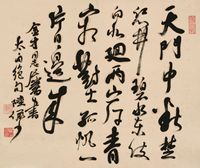 天門中斷楚
江開碧水東流
廻兩岸青
山相對出孤帆一
片日邊來
金才同志
太白絕句